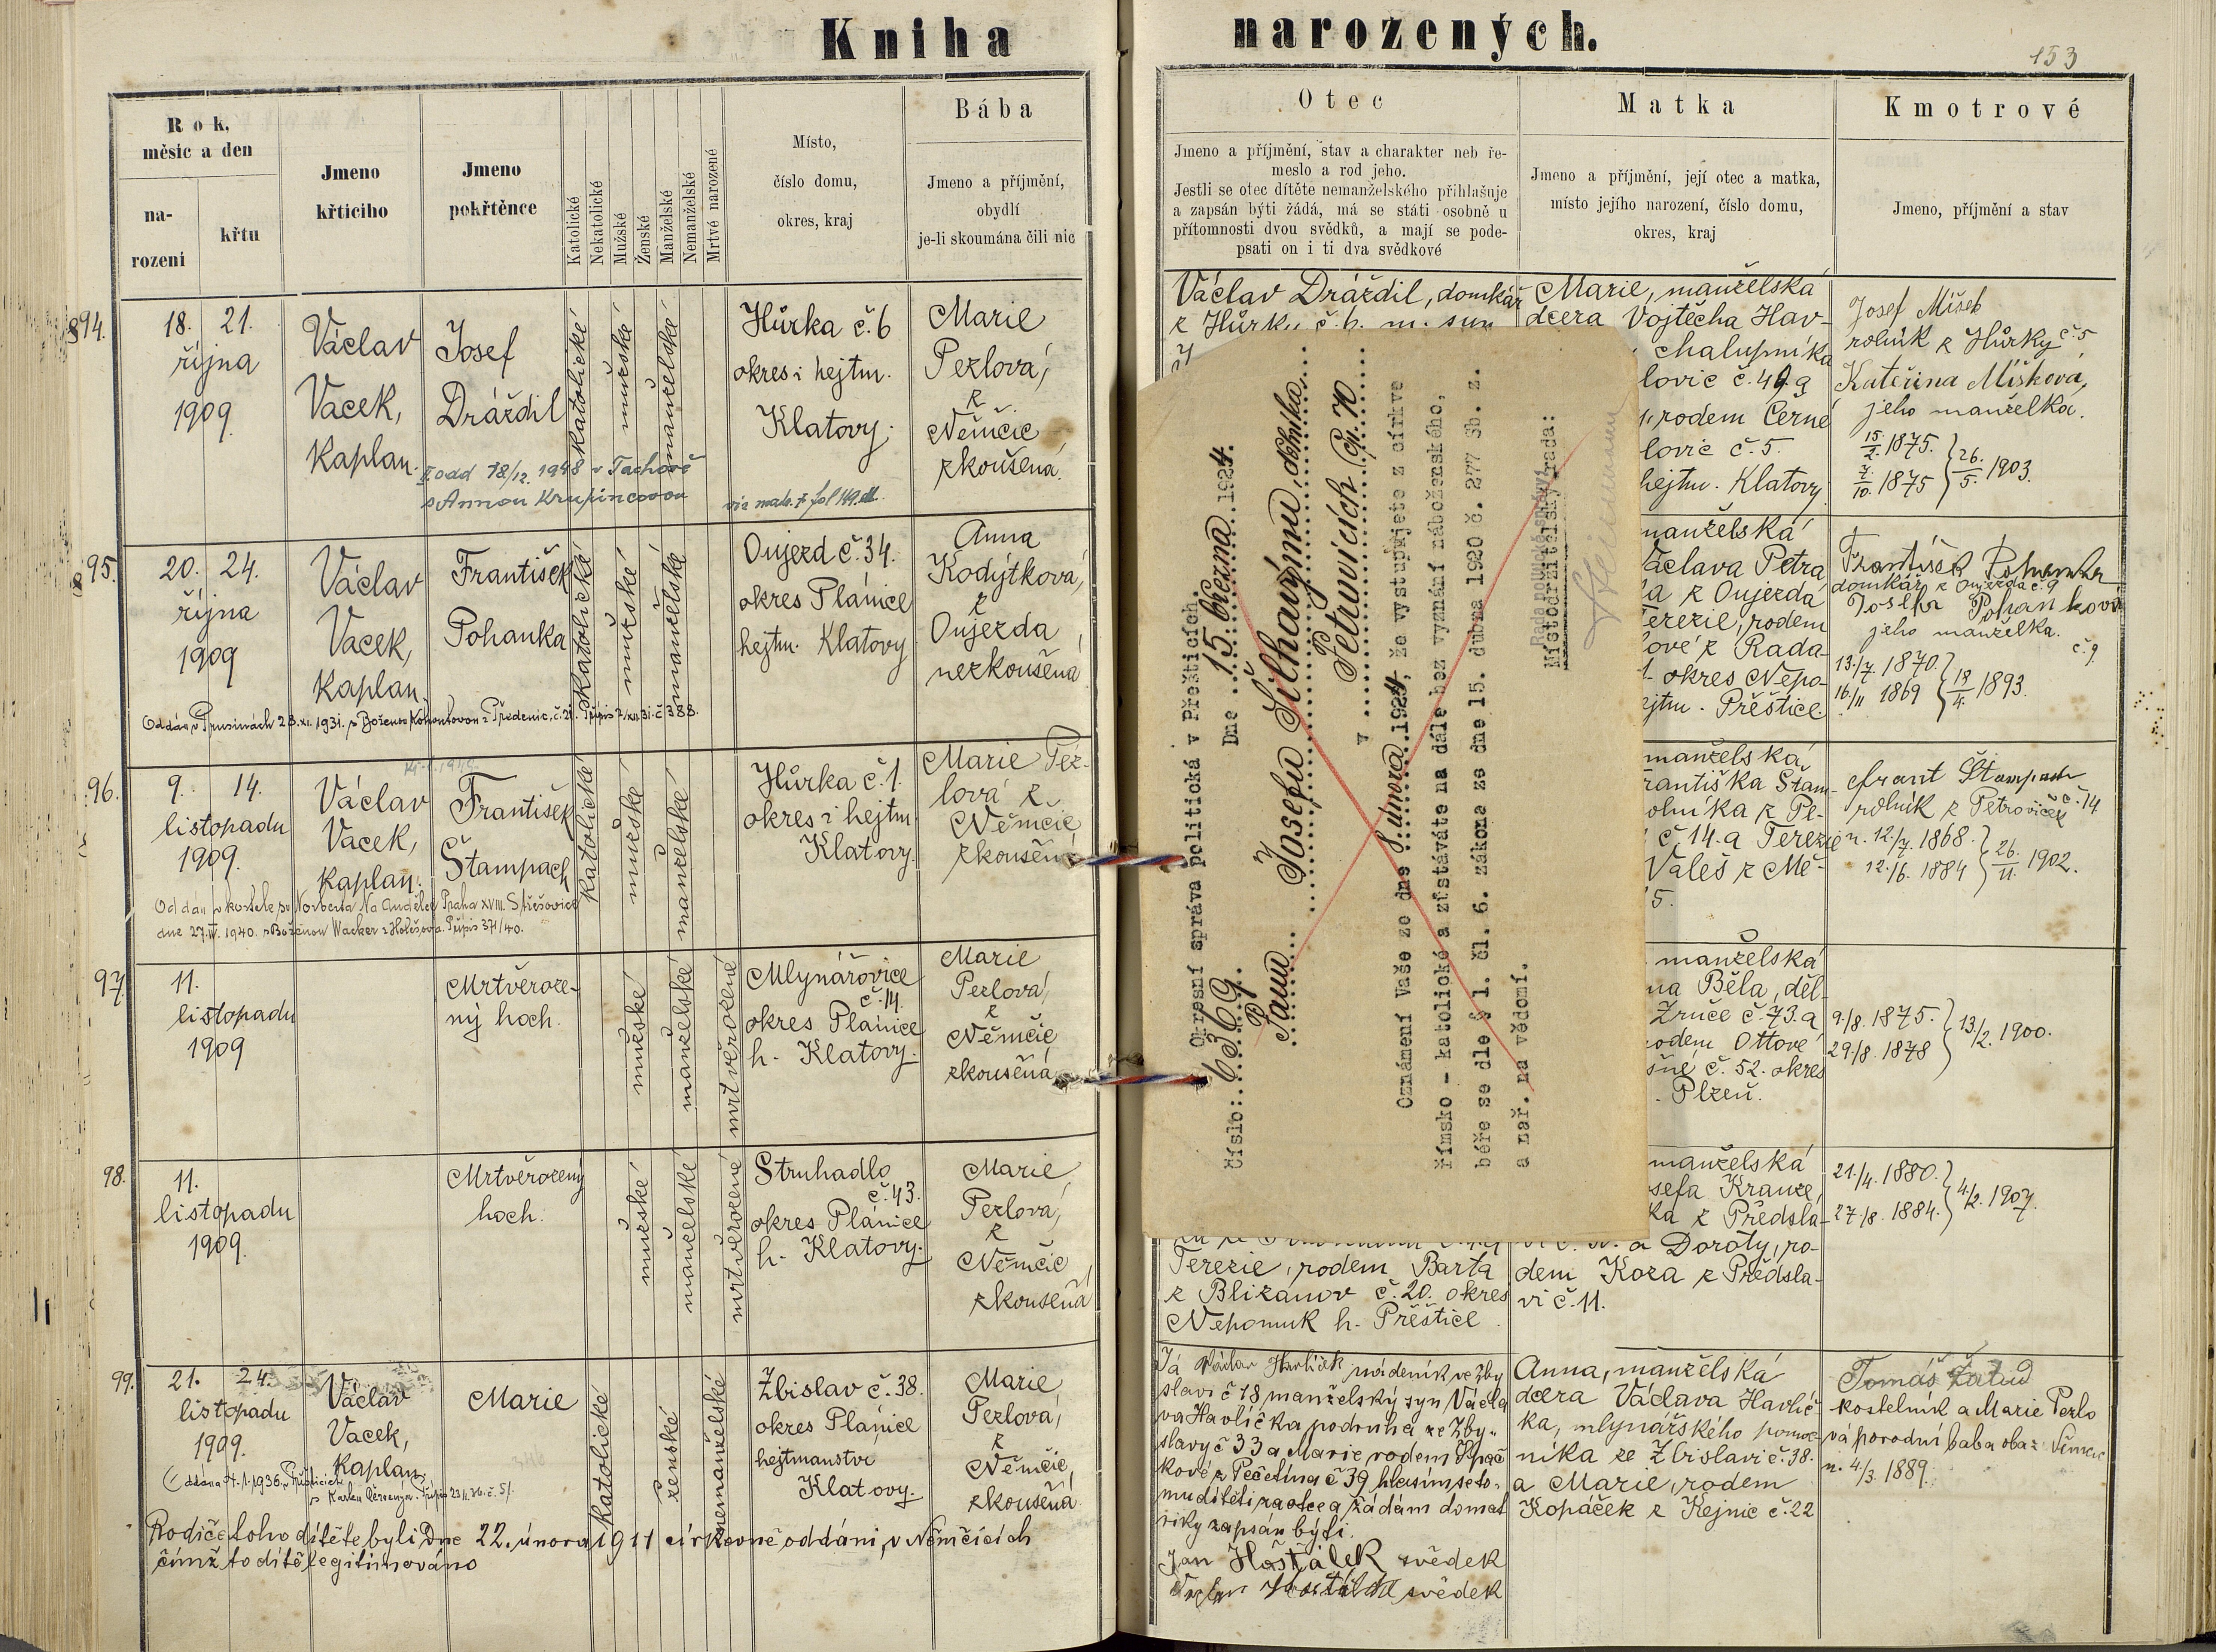 Kniha
narozených.
153
Rok,
měsíc a den
na-
rozeni
křtu
Jmeno
křticiho
Jmeno
pokřtěnce
Katolické
Nekatolické
Mužské
Ženské
Manželské
Nemanželské
Mrtvé narozené
Místo,
číslo domu,
okres, kraj
Bába
Jmeno a příjmění,
obydlí
je-li skoumána čili nic
Otec
Jmeno a příjmění, stav a charakter neb ře-
meslo a rod jeho.
Jestli se otec dítěte nemanželského přihlašuje
a zapsán býti žádá, má se státi osobně u
přítomnosti dvou svědků, a mají se pode-
psati on i ti dva svědkové
Matka
Jmeno a příjmění, její otec a matka,
místo jejího narození, číslo domu,
okres, kraj
Kmotrové
Jmeno, příjmění a stav
94.
18. 21.
října
1909.
Václav
Vacek,
Kaplan.
Josef
Dráždil
katolické
mužské
manželské
Hůrka č. 6
okres i hejtm.
Klatovy.
Marie
Pezlová,
z
Němčic
zkoušená.
odd 18/12. 1948 v Tachově
s Annou Krupincovou
Václav Dráždil, domkář
z Hůrky č. 6. m. syn
Marie, manželská
dcera Vojtěcha Hav-
chalupníka
lovic č. 49. a
rodem Černé
lovic č. 5.
hejtm. Klatovy
Josef Míšek
rolník z Hůrky č. 5
Kateřina Míšková,
jeho manželka.
15./2. 1875.
7./10. 1875
26./5. 1903.
95.
20. 24.
října
1909
Václav
Vacek,
Kaplan.
František
Pohanka
katolické
mužské
manželské
Oujezd č. 34.
okres Plánice
hejtm. Klatovy
Anna
Kodýtková,
z
Oujezda
nezkoušená
Oddán v Prusinách 28. XI. 1931. s Boženou Kohoutovou z Předenic, č. 21. Přípis 7/XII. 31. č. 388.
manželská
Václava Petra
z Oujezda
Terezie, rodem
lové z Rada-
okres Nepo-
hejtm. Přeštice
František Pohanka
domkář z Oujezda č. 9
Josefa Pohanková
jeho manželka.
č. 9.
13./7. 1870.
16./11 1869
18/4. 1893.
96.
9. 14.
listopadu
1909.
Václav
Vacek,
Kaplan.
František
Štampach
katolické
mužské
manželské
Hůrka č. 1.
okres i hejtm
Klatovy.
Marie Pez-
lová z
Němčic
zkoušená
Oddán v kostele sv Norberta Na Andělce Praha XVIII. Střešovice
dne 27. IV. 1940. s Boženou Wacker z Holešova. Přípis 371/40.
manželská
Františka Štam-
rolníka z Pe-
č 14. a Terezie
Valeš z Mě-
5.
Frant Štampach
rolník z Petroviček č. 14
n. 12./7. 1868.
12./6. 1884
26./11. 1902.
97.
11.
listopadu
1909
Mrtvěroze-
ný hoch.
mužské
manželské
mrtvěrozené
Mlynářovice
č. 14.
okres Plánice
h. Klatovy.
Marie
Pezlová,
z
Němčic
zkoušená
manželská
Běla, děl-
Zruče č. 73. a
rodem Ottové
č. 52. okres
Plzeň.
9./8. 1875.
29./8. 1878
13./2. 1900.
98.
11.
listopadu
1909.
Mrtvěrozený
hoch.
mužské
manželské
mrtvěrozené
Struhadlo
č. 43.
okres Plánice
h. Klatovy.
Marie
Pezlová,
z
Němčic
zkoušená
Terezie, rodem Barta
z Blizanov č. 20. okres
Nepomuk h. Přeštice
manželská
Josefa Krauze,
z Předsla-
a Doroty, ro-
dem Koza z Předsla-
vi č. 11.
21./4. 1880.
27./8. 1884.
4./2. 1907.
99.
21. 24.
listopadu
1909.
Václav
Vacek,
Kaplan.
Marie
katolické
ženské
nemanželské
Zbislav č. 38.
okres Plánice
hejtmanství
Klatovy.
Marie
Pezlová,
z
Němčic
zkoušená.
Rodiče toho dítěte byli Dne 22. února 1911 církevně oddáni, v Němčicích
čímž to dítě legitimováno
Já Václav Havlíček nádeník ve Zby
slavi č 18 manželský syn Václa
va Havlíčka podruha ze Zby-
slavy č 33 a Marie rodem Špač
kové z Pečetína č 39 hlásím se to-
mu dítěti za otce a žádám do mat
riky zapsán býti.
Jan Hošťálek svědek
svědek
Anna, manželská
dcera Václava Havlíč-
ka, mlynářského pomoc-
níka ze Zbislavi č. 38.
a Marie, rodem
Kopáček z Kejnic č. 22
Tomáš Žalud
kostelník a Marie Pezlo
vá porodní baba oba z Němčic
n. 4/3. 1889.
Okresní správa politická v Přešticích.
Číslo: 6369.
Dne 15. března 1924.
Panu Josefu Šilhavýmu, dělníku
v Petrovicích čp. 70
Oznámení Vaše ze dne 8. února 1924, že vystupujete z církve
římsko - katolické a zůstáváte na dále bez vyznání náboženského,
béře se dle § 1. čl. 6. zákona ze dne 15. dubna 1920 č. 277 Sb. z.
a nař. na vědomí.
Rada politické správy:
Místodržitelský rada: